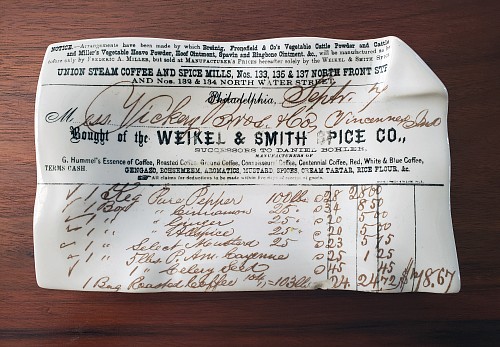 NOTICE.—Arrangements have been made by which Breinig, Fronefield & Co's Vegetable Cattle Powder and Cattle
and Miller's Vegetable Heave Powder, Hoof Ointment, Spavin and Ringbone Ointment, &c., will be manufactured as
before only by Frederic A. Miller, but sold at Manufacturer's Prices hereafter solely by the Weikel & Smith Spice
UNION STEAM COFFEE AND SPICE MILLS, Nos. 133, 135 & 137 NORTH FRONT STR
AND Nos. 132 & 134 NORTH WATER STREET.
Philadelphia, Septr. 19
M ess. Vickey Bros. & Co Vincennes Ind
Bought of the WEIKEL & SMITH SPICE CO.,
SUCCESSORS TO DANIEL BOHLEN,
MANUFACTURERS OF
G. Hummel's Essence of Coffee, Roasted Coffee, Ground Coffee, Connoisseur Coffee, Centennial Coffee, Red, White & Blue Coffee,
TERMS CASH. GENGAZO, BOHSEMEEM, AROMATICS, MUSTARD SPICES, CREAM TARTAR, RICE FLOUR, &c.
All claims for deductions to be made within five days of receipt of goods.
1 Keg Pure Pepper 100 lbs @ 28 28.00
1 Box " Cinnamon 25 " @ 34 8.50
1 " " Ginger 25 " @ 20 5.00
1 " " Allspice 25 " @ 20 5.00
1 " Select Mustard 25 " @ 23 5.75
1 " 5 lbs P. Am. Cayenne @ 25 1.25
1 " " Celery Seed @ 45 45
1 Bag Roasted Coffee 103 lbs 24 24.72 $78.67